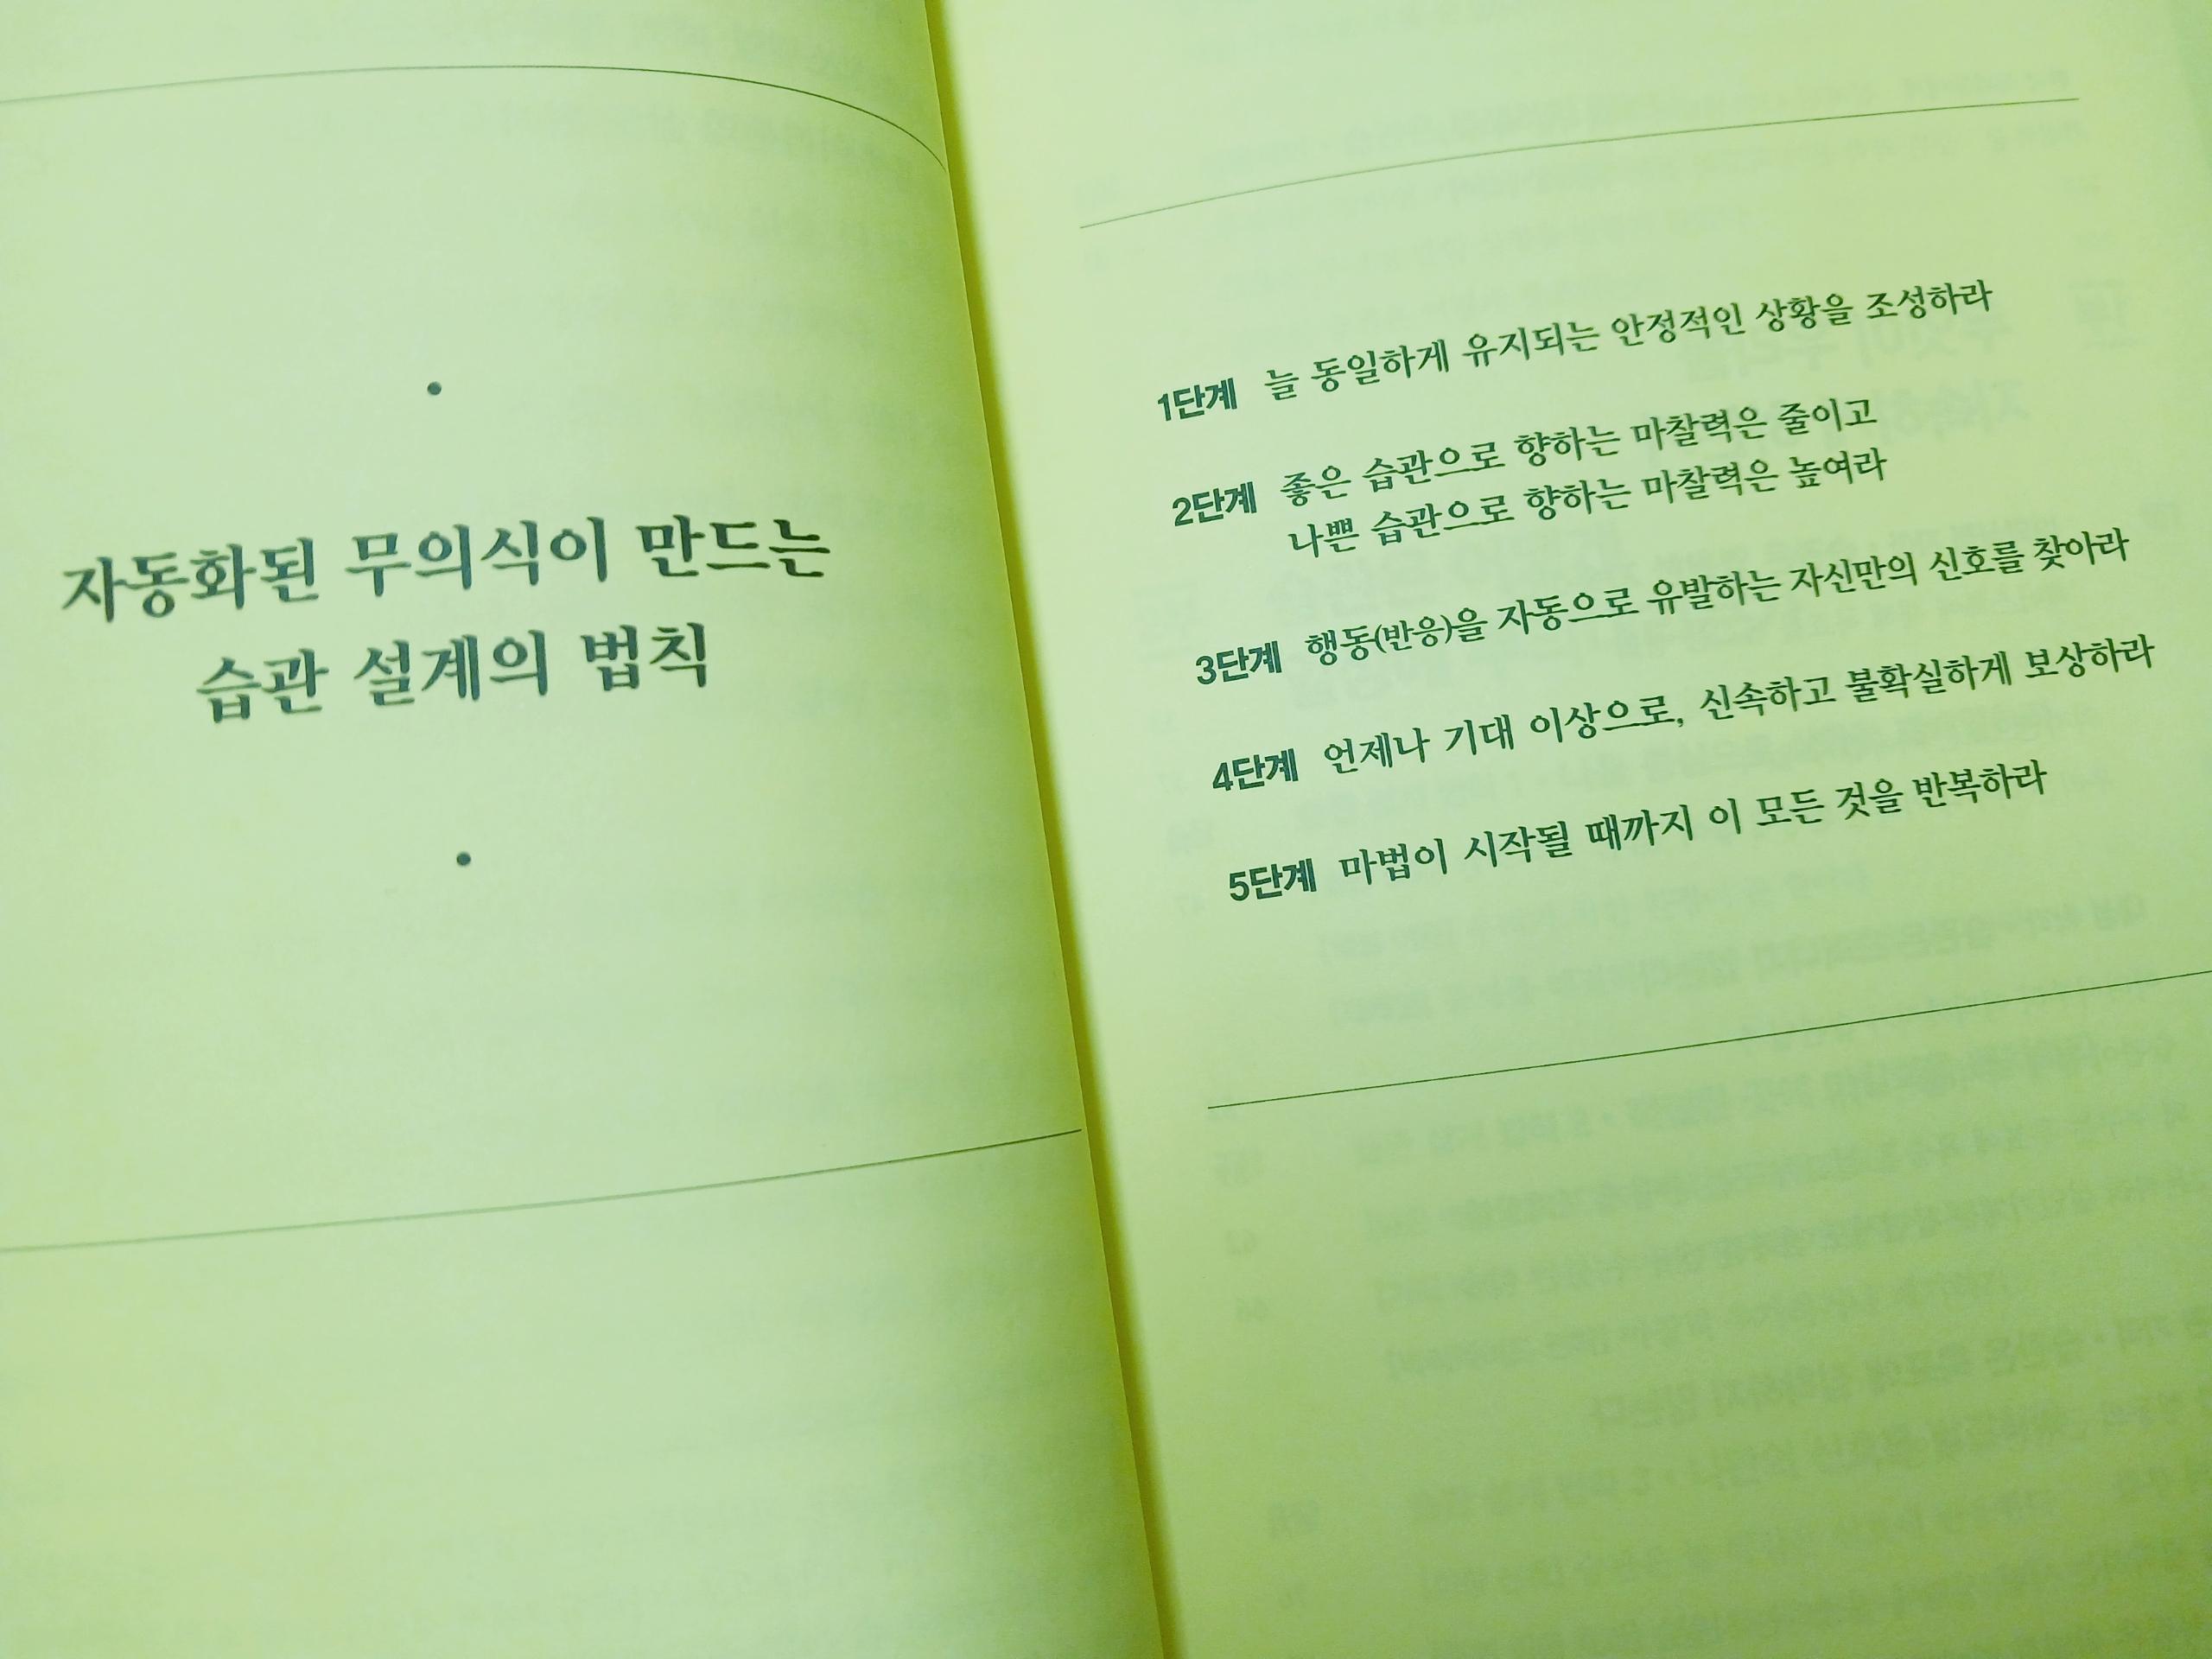 자동화된 무의식이 만드는
습관 설계의 법칙
1단계 늘 동일하게 유지되는 안정적인 상황을 조성하라
2단계 좋은 습관으로 향하는 마찰력은 줄이고
나쁜 습관으로 향하는 마찰력은 높여라
3단계 행동(반응)을 자동으로 유발하는 자신만의 신호를 찾아라
4단계 언제나 기대 이상으로, 신속하고 불확실하게 보상하라
5단계 마법이 시작될 때까지 이 모든 것을 반복하라